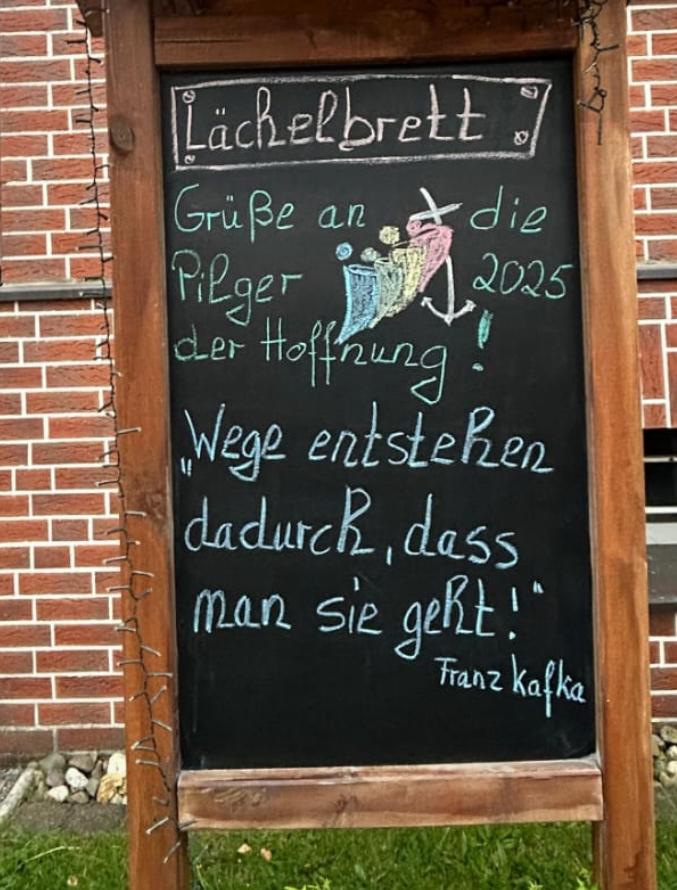 Lächelbrett
Grüße an die
Pilger 2025
der Hoffnung!
„Wege entstehen
dadurch, dass
man sie geht!"
Franz Kafka